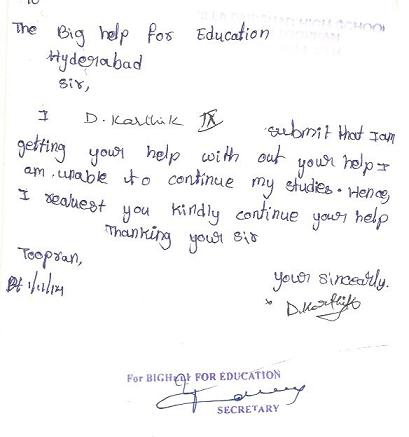 The Big help for Education
Hyderabad
Sir,
I D. Karthik IX submit that I am
getting your help with out your help I
am unable to continue my studies. Hence,
I reaquest you kindly continue your help
Thanking your sir
Toopran,
Dt 1/11/14
your sincerely.
D. Karthik
For BIGHELP FOR EDUCATION
SECRETARY